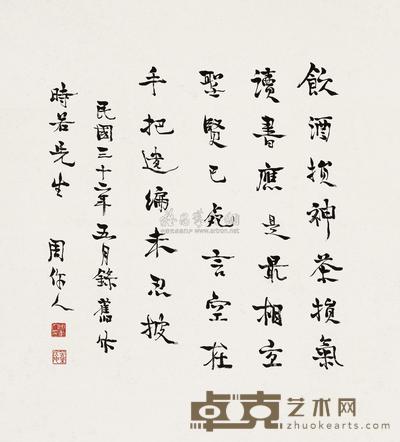 飲酒損神茶損氣
讀書應是最相宜
聖賢已死言空在
手把遺編未忍披
民國三十六年五月錄舊作
時若先生 周作人
卓克艺术网
zhuokearts.com